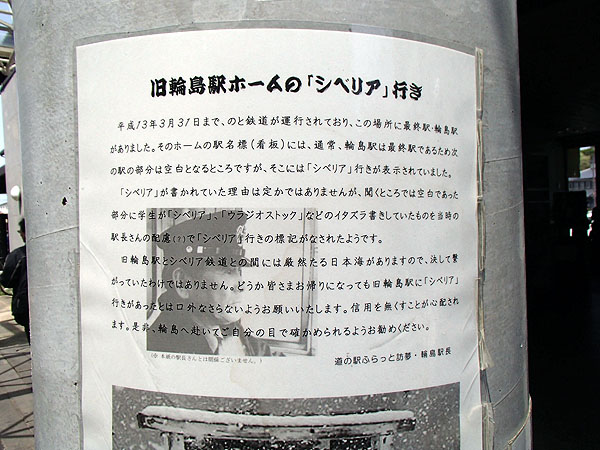 旧輪島駅ホームの「シベリア」行き
平成13年3月31日まで、のと鉄道が運行されており、この場所に最終駅・輪島駅
がありました。そのホームの駅名標(看板)には、通常、輪島駅は最終駅であるため次
の駅の部分は空白となるところですが、そこには「シベリア」行きが表示されていました。
「シベリア」が書かれていた理由は定かではありませんが、聞くところでは空白であった
部分に学生が「シベリア」、「ウラジオストック」などのイタズラ書きしていたものを当時の
駅長さんの配慮(?)で「シベリア」行きの標記がなされたようです。
旧輪島駅とシベリア鉄道との間には厳然たる日本海がありますので、決して繋
がっていたわけではありません。どうか皆さまお帰りになっても旧輪島駅に「シベリア」
行きがあったとは口外なさらないようお願いいたします。信用を無くすことが心配され
ます。是非、輪島へ赴いてご自分の目で確かめられるようお勧めください。
道の駅ふらっと訪夢・輪島駅長